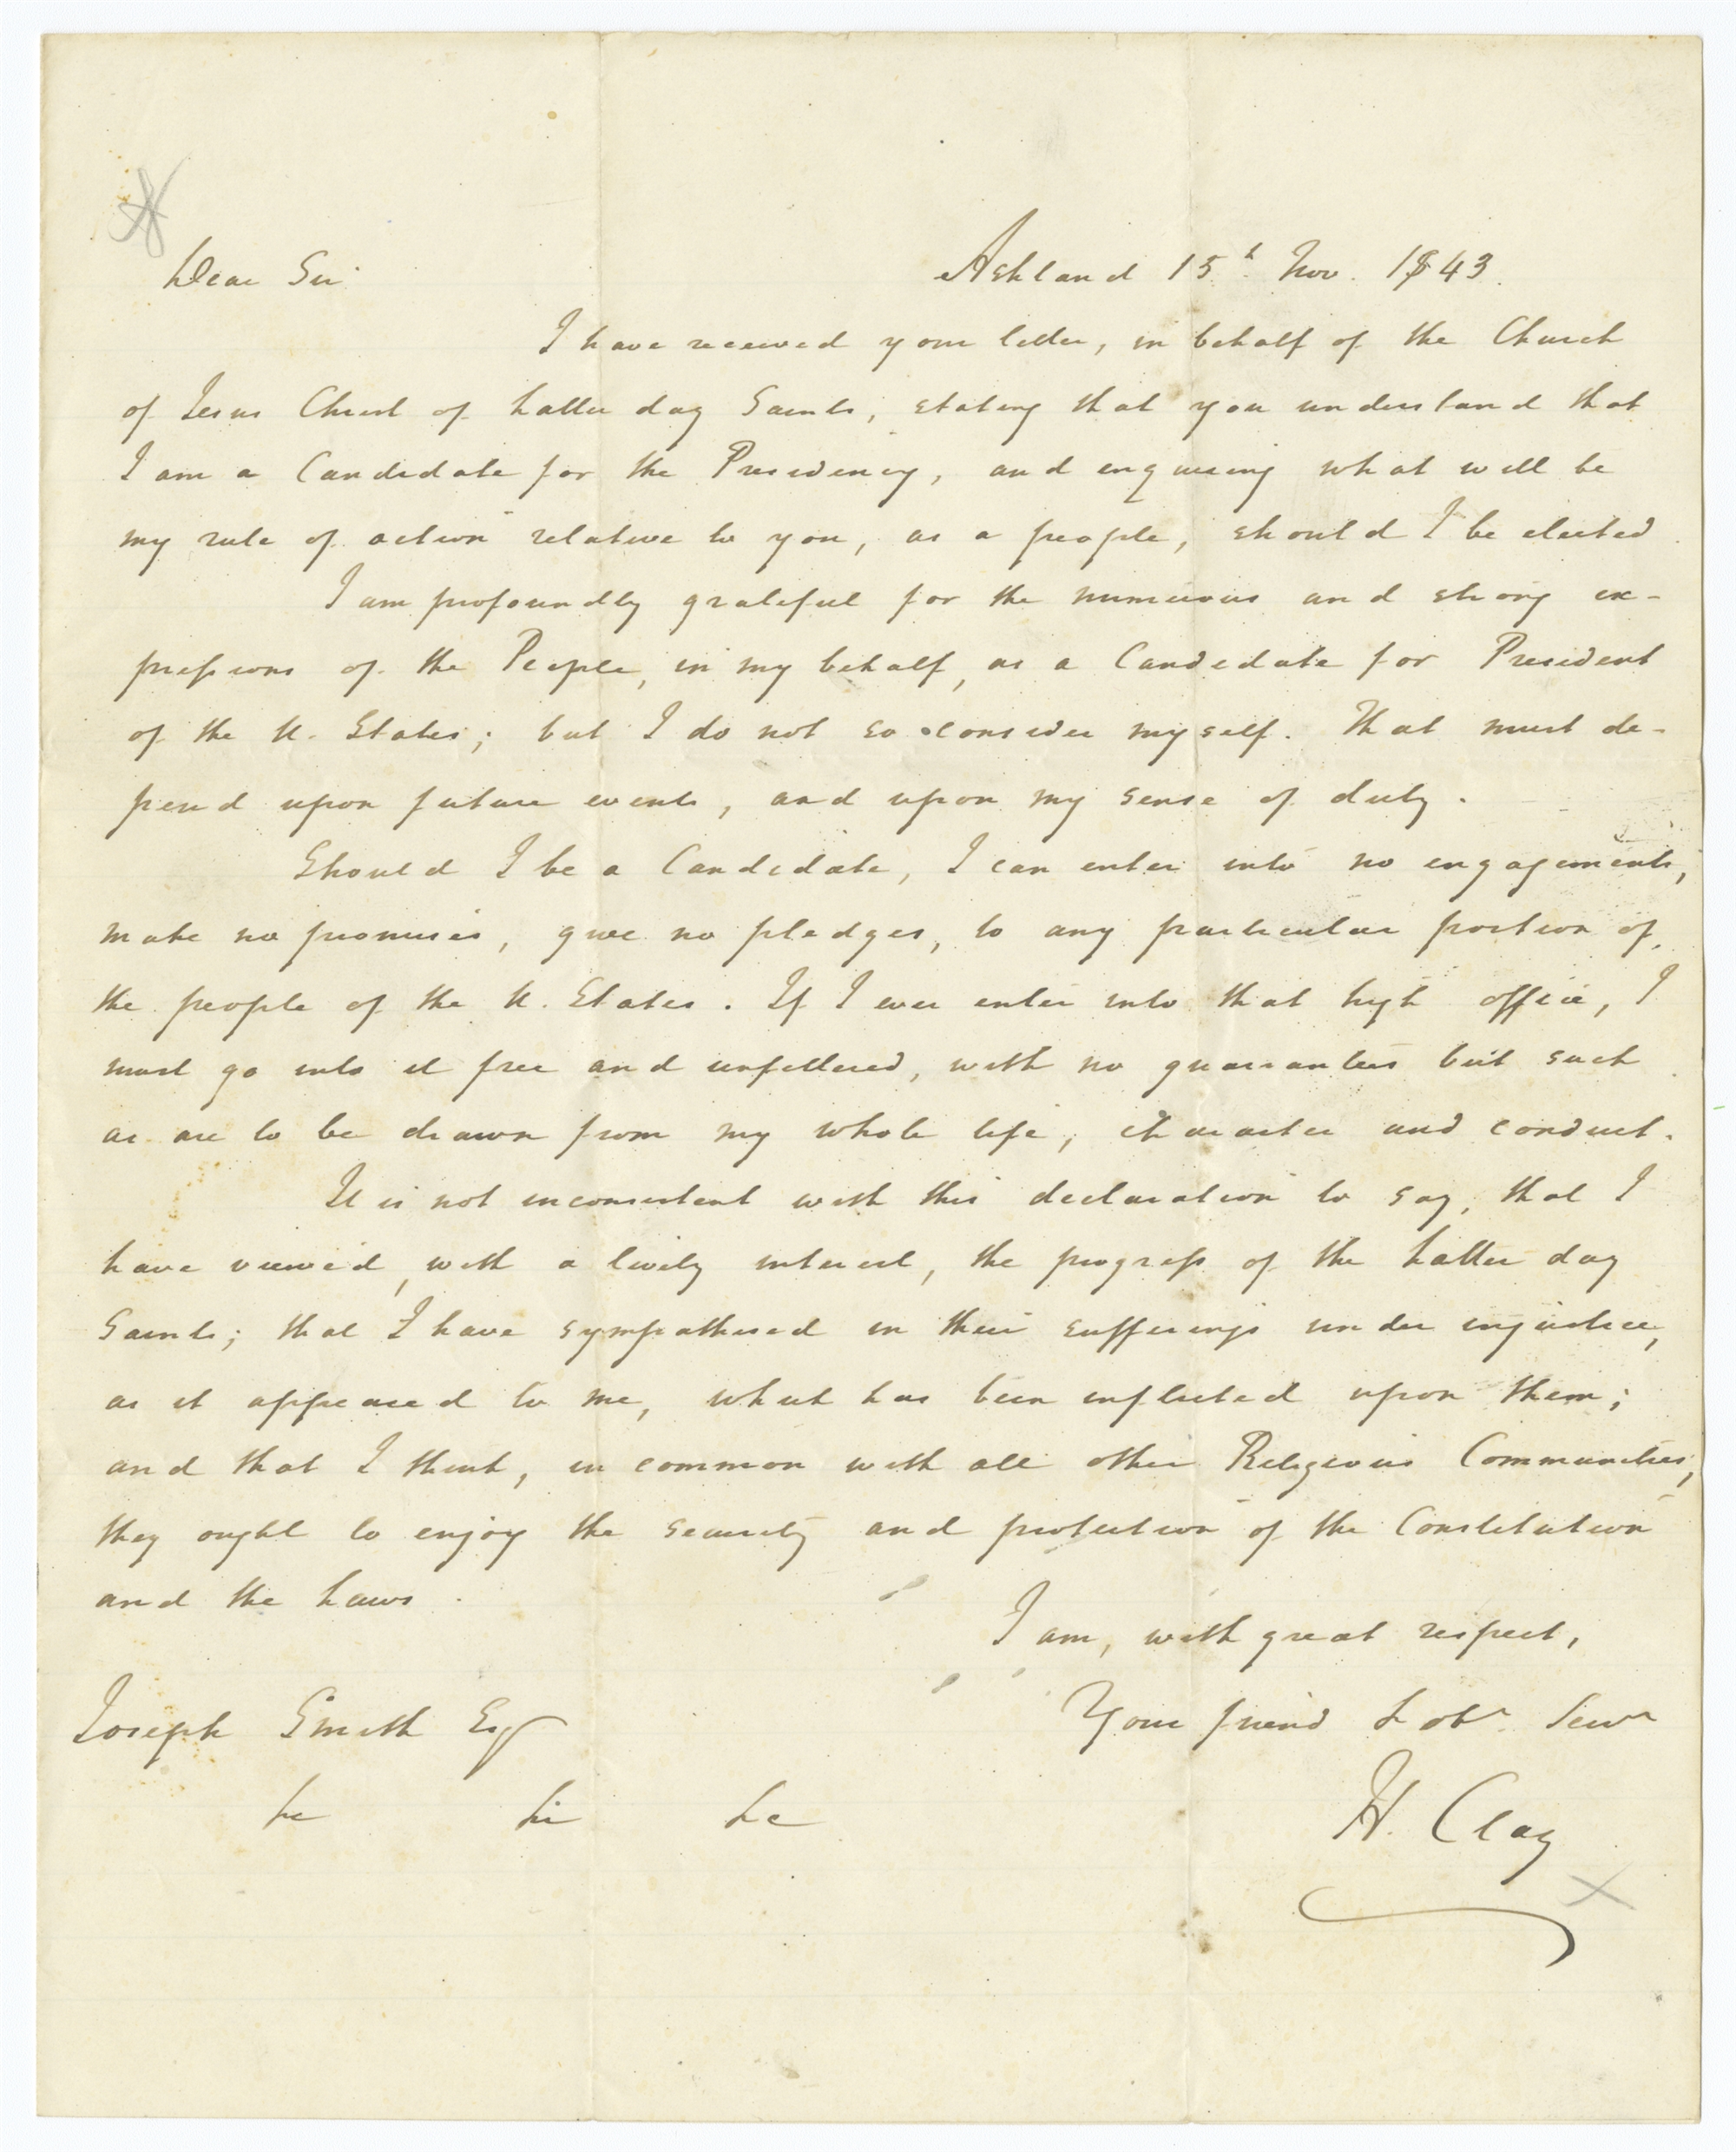 Dear Sir Ashland 15.h Nov. 1843.
I have received your letter, in behalf of the Church
of Jesus Christ of Latter day Saints, stating that you understand that
I am a Candidate for the Presidency, and enquiring what will be
my rule of action relative to you, as a people, should I be elected.
I am profoundly grateful for the numerous and strong ex-
pressions of the People, in my behalf, as a Candidate for President
of the U. States; but I do not so consider myself. That must de-
pend upon future events, and upon my sense of duty.
Should I be a Candidate, I can enter into no engagements,
make no promises, give no pledges, to any particular portion of
the people of the U. States. If I ever enter into that high office, I
must go into it free and unfettered, with no guarantees but such
as are to be drawn from my whole life, character and conduct.
It is not inconsistent with this declaration to say, that I
have viewed, with a lively interest, the progress of the Latter day
Saints; that I have sympathised in their sufferings under injustice,
as it appeared to me, which has been inflicted upon them;
and that I think, in common with all other Religious Communities,
they ought to enjoy the security and protection of the Constitution
and the Laws.
I am, with great respect,
Your friend & obt Servt
Joseph Smith Esq
&c &c &c
H. Clay